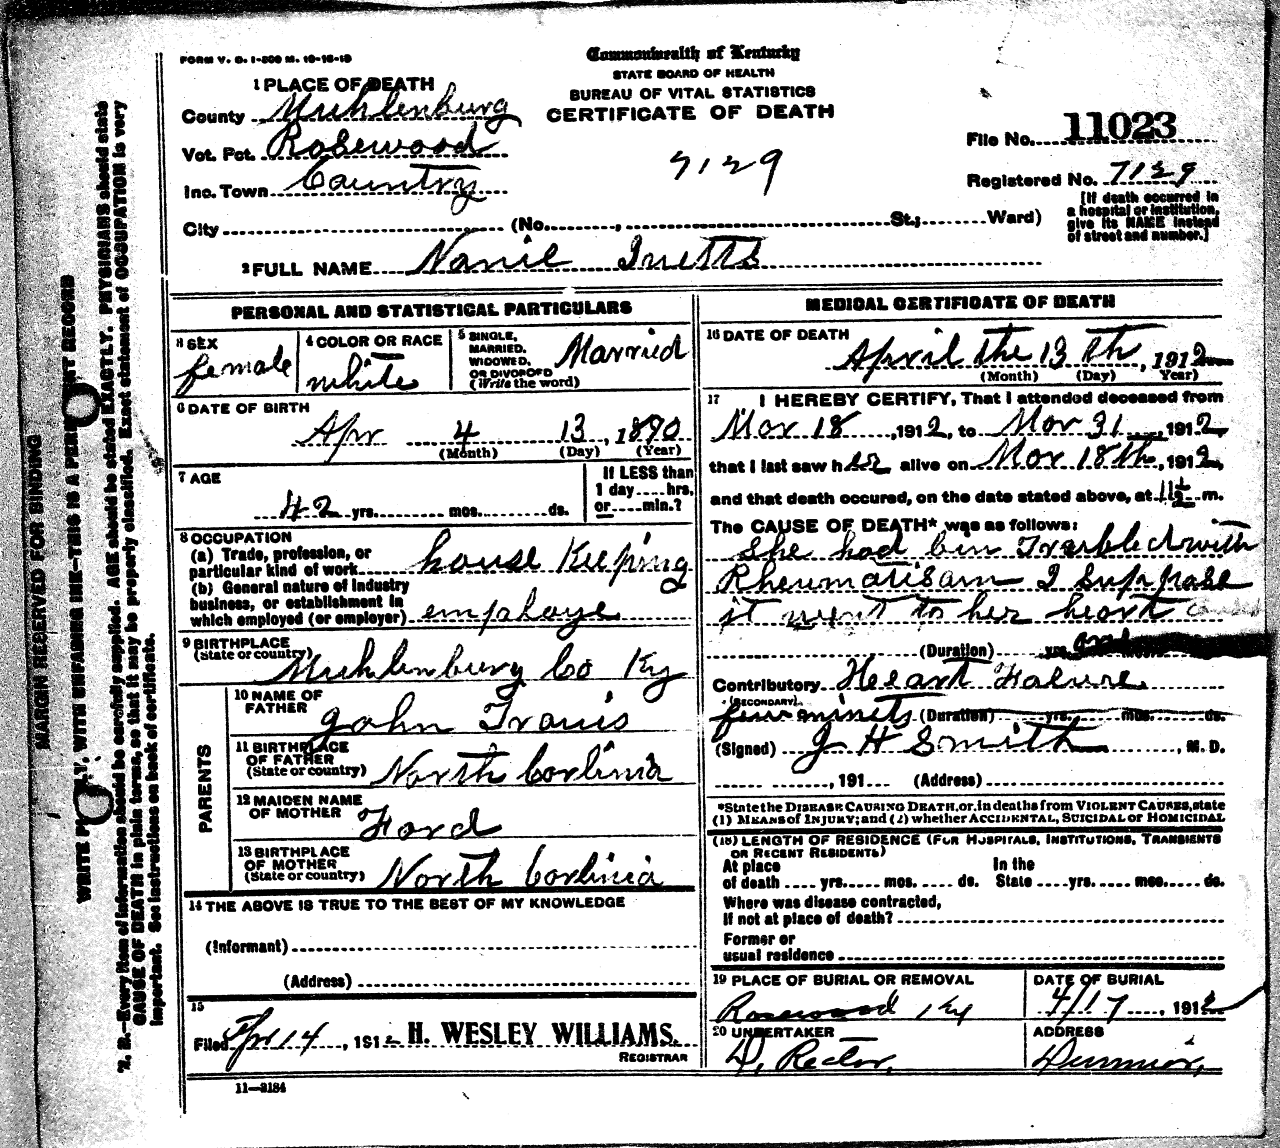 FORM V. S. 1-300 M. 10-18-10
Commonwealth of Kentucky
STATE BOARD OF HEALTH
BUREAU OF VITAL STATISTICS
CERTIFICATE OF DEATH
1 PLACE OF DEATH
County Muhlenburg
Vot. Pct. Rosewood
Inc. Town Country
City (No. , St.; Ward)
7129
File No. 11023
Registered No. 7129
[If death occurred in
a hospital or institution,
give its NAME instead
of street and number.]
2 FULL NAME Nanie
PERSONAL AND STATISTICAL PARTICULARS
3 SEX
female
4 COLOR OR RACE
white
5 SINGLE,
MARRIED,
WIDOWED,
OR DIVORCED
(Write the word)
Married
6 DATE OF BIRTH
Apr 4 13, 1890
(Month) (Day) (Year)
7 AGE
42 yrs. mos. ds.
If LESS than
1 day....hrs.
or....min.?
8 OCCUPATION
(a) Trade, profession, or
particular kind of work house Keeping
(b) General nature of industry
business, or establishment in
which employed (or employer) employe
9 BIRTHPLACE
(State or country)
Muhlenburg Co Ky
PARENTS
10 NAME OF
FATHER
John Travis
11 BIRTHPLACE
OF FATHER
(State or country) North Corlinia
12 MAIDEN NAME
OF MOTHER
Ford
13 BIRTHPLACE
OF MOTHER
(State or country) North Corlinia
14 THE ABOVE IS TRUE TO THE BEST OF MY KNOWLEDGE
(Informant)
(Address)
15
Filed Apr 14, 1912 H. WESLEY WILLIAMS,
REGISTRAR
11—3184
MEDICAL CERTIFICATE OF DEATH
16 DATE OF DEATH
April the 13 th, 1912
(Month) (Day) (Year)
17 I HEREBY CERTIFY, That I attended deceased from
Mar 18, 1912, to Mar 31, 1912,
that I last saw her alive on Mar 18th, 1912,
and that death occured, on the date stated above, at 11½ m.
The CAUSE OF DEATH* was as follows:
She had bin Trubled with
Rheumatisam I suppose
it went to her heart
(Duration) yrs.
Contributory Heart Falure.
(SECONDARY)
few minits (Duration) yrs. mos. ds.
(Signed) J H Smith, M. D.
, 191 (Address)
*State the DISEASE CAUSING DEATH, or, in deaths from VIOLENT CAUSES, state
(1) MEANS OF INJURY; and (2) whether ACCIDENTAL, SUICIDAL OR HOMICIDAL
(18) LENGTH OF RESIDENCE (FOR HOSPITALS, INSTITUTIONS, TRANSIENTS
OR RECENT RESIDENTS)
At place In the
of death yrs. mos. ds. State yrs. mos. ds.
Where was disease contracted,
if not at place of death?
Former or
usual residence
19 PLACE OF BURIAL OR REMOVAL
Rosewood Ky
DATE OF BURIAL
4/17, 1912
20 UNDERTAKER
D. Rector,
ADDRESS
Dunmor,
MARGIN RESERVED FOR BINDING
WITH UNFADING INK—THIS IS A RECORD
N. B.—Every item of information should be carefully supplied. AGE should be stated EXACTLY. PHYSICIANS should state
CAUSE OF DEATH in plain terms, so that it may be properly classified. Exact statement of OCCUPATION is very
important. See instructions on back of certificate.